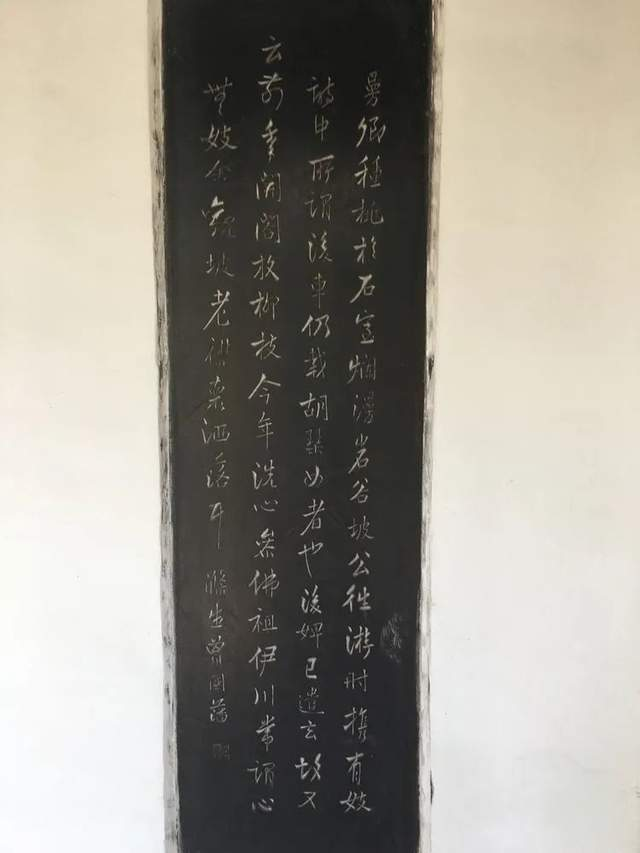 曼卿種桃於石室爛漫岩谷坡公往游時攜有妓
詩中所謂後車仍載胡琴女者也後婢已遣去故又
云前年開閣放柳枝今年洗心參佛祖伊川常謂心
無妓余觀坡老襟懷洒落耳 滌生曾國藩